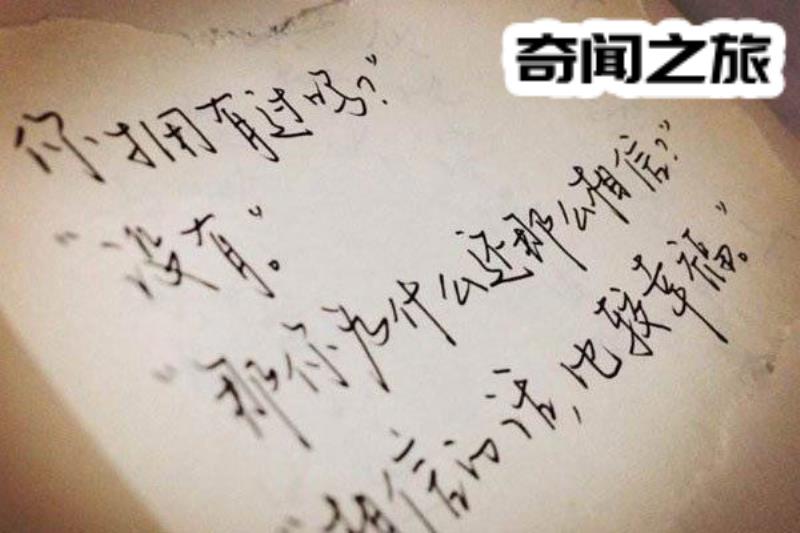 奇闻之旅
你拥有过吗?”
“没有。”
“那你为什么还那么相信?”
“相信的话,比较幸福。”